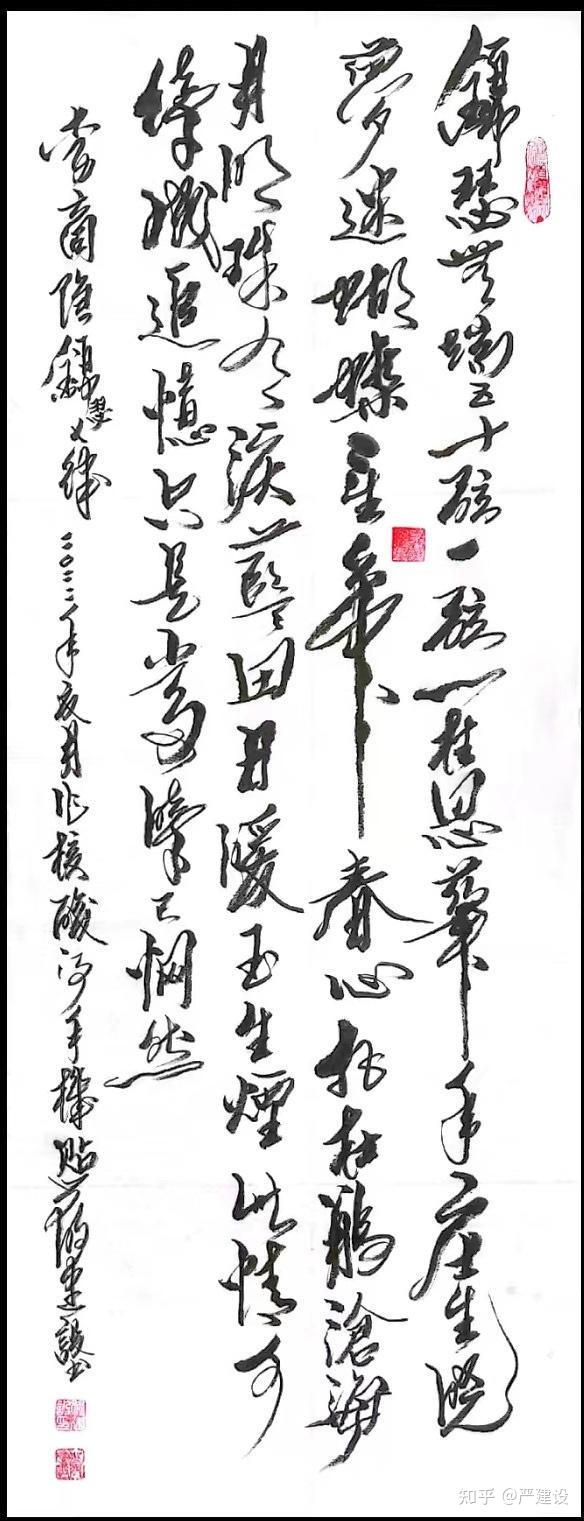 錦瑟無端五十弦一弦一柱思華年莊生曉
夢迷蝴蝶望帝春心托杜鵑滄海
月明珠有淚藍田日暖玉生煙此情可
待成追憶只是當時已惘然
李商隱錦瑟七律 二〇二二年月作核酸手機建設
知乎 @严建设